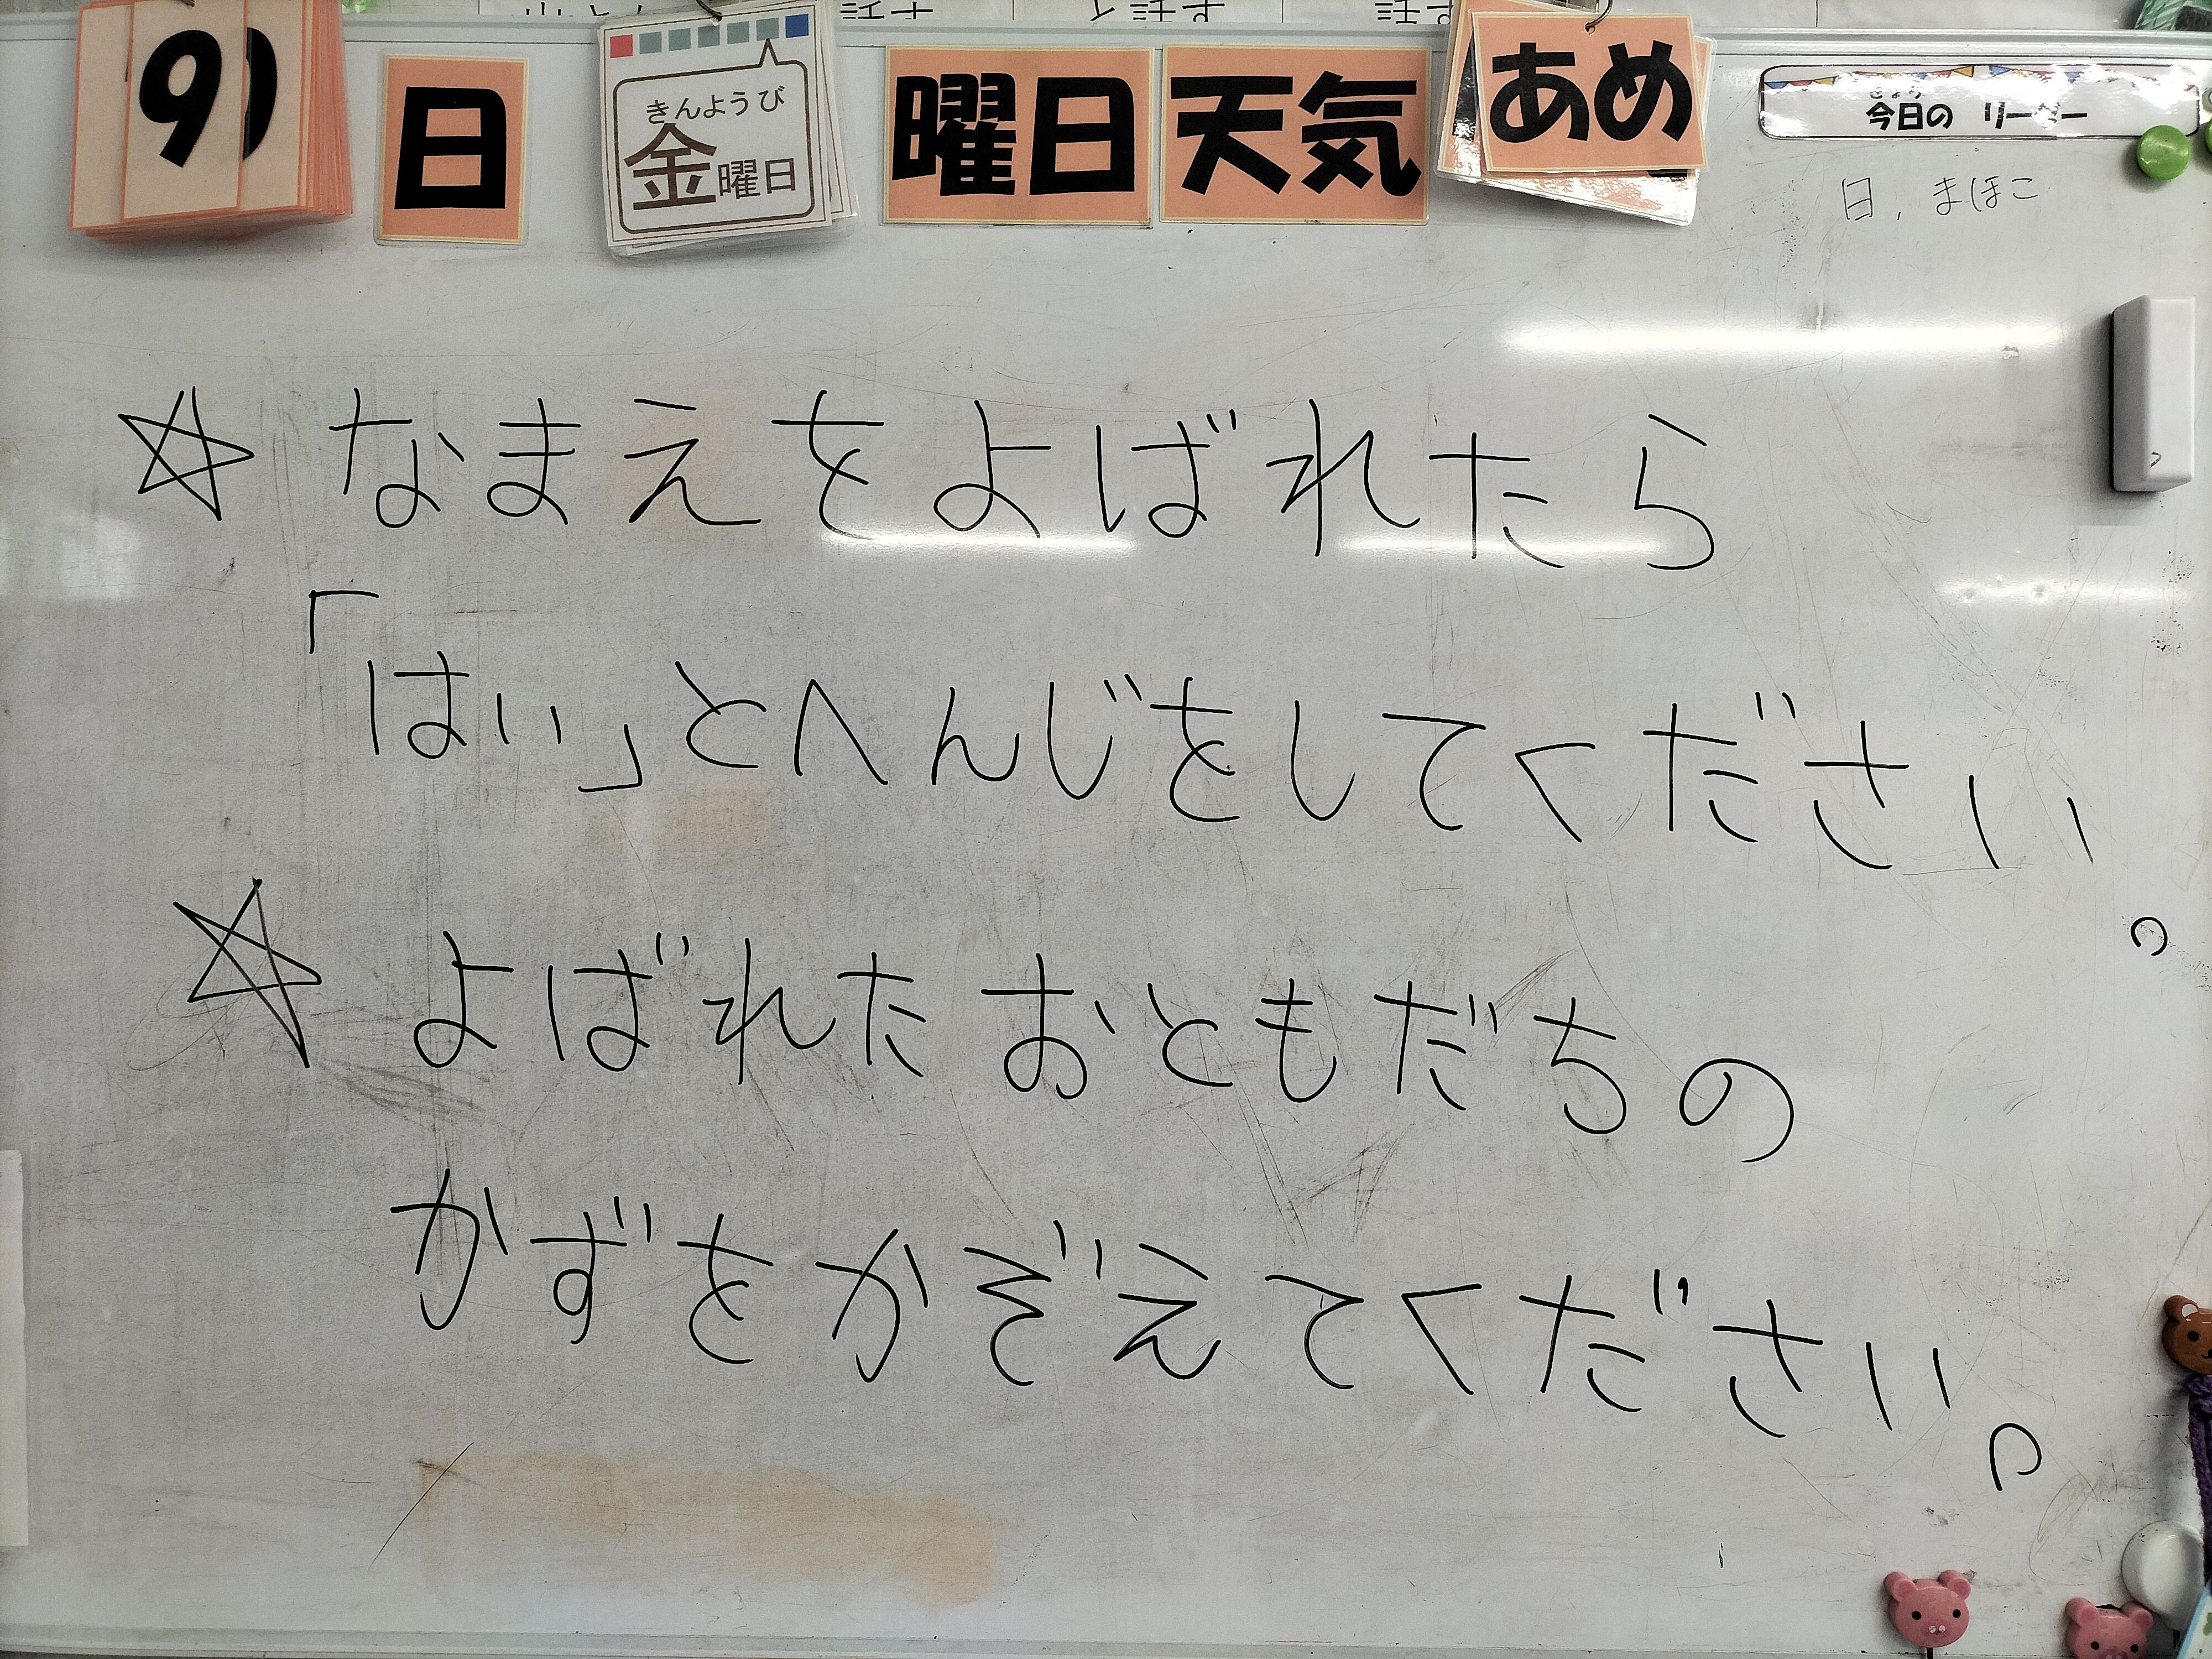 9 日 きんようび 金曜日 曜日 天気 あめ
今日の リーダー
日, まほこ
☆ なまえをよばれたら
「はい」とへんじをしてください。
☆ よばれた おともだちの
かずをかぞえてください。